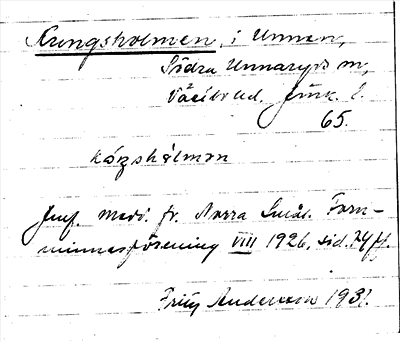 Kungsholmen, i Unnen,
Södra Unnaryds sn,
Västbo hd. Jönk. l.
65.
kógshólmən
Jmf. Medd. fr. Norra Smål. Forn-
minnesförening VIII 1926, sid. 74 ff.
Fritz Andersson 1931.